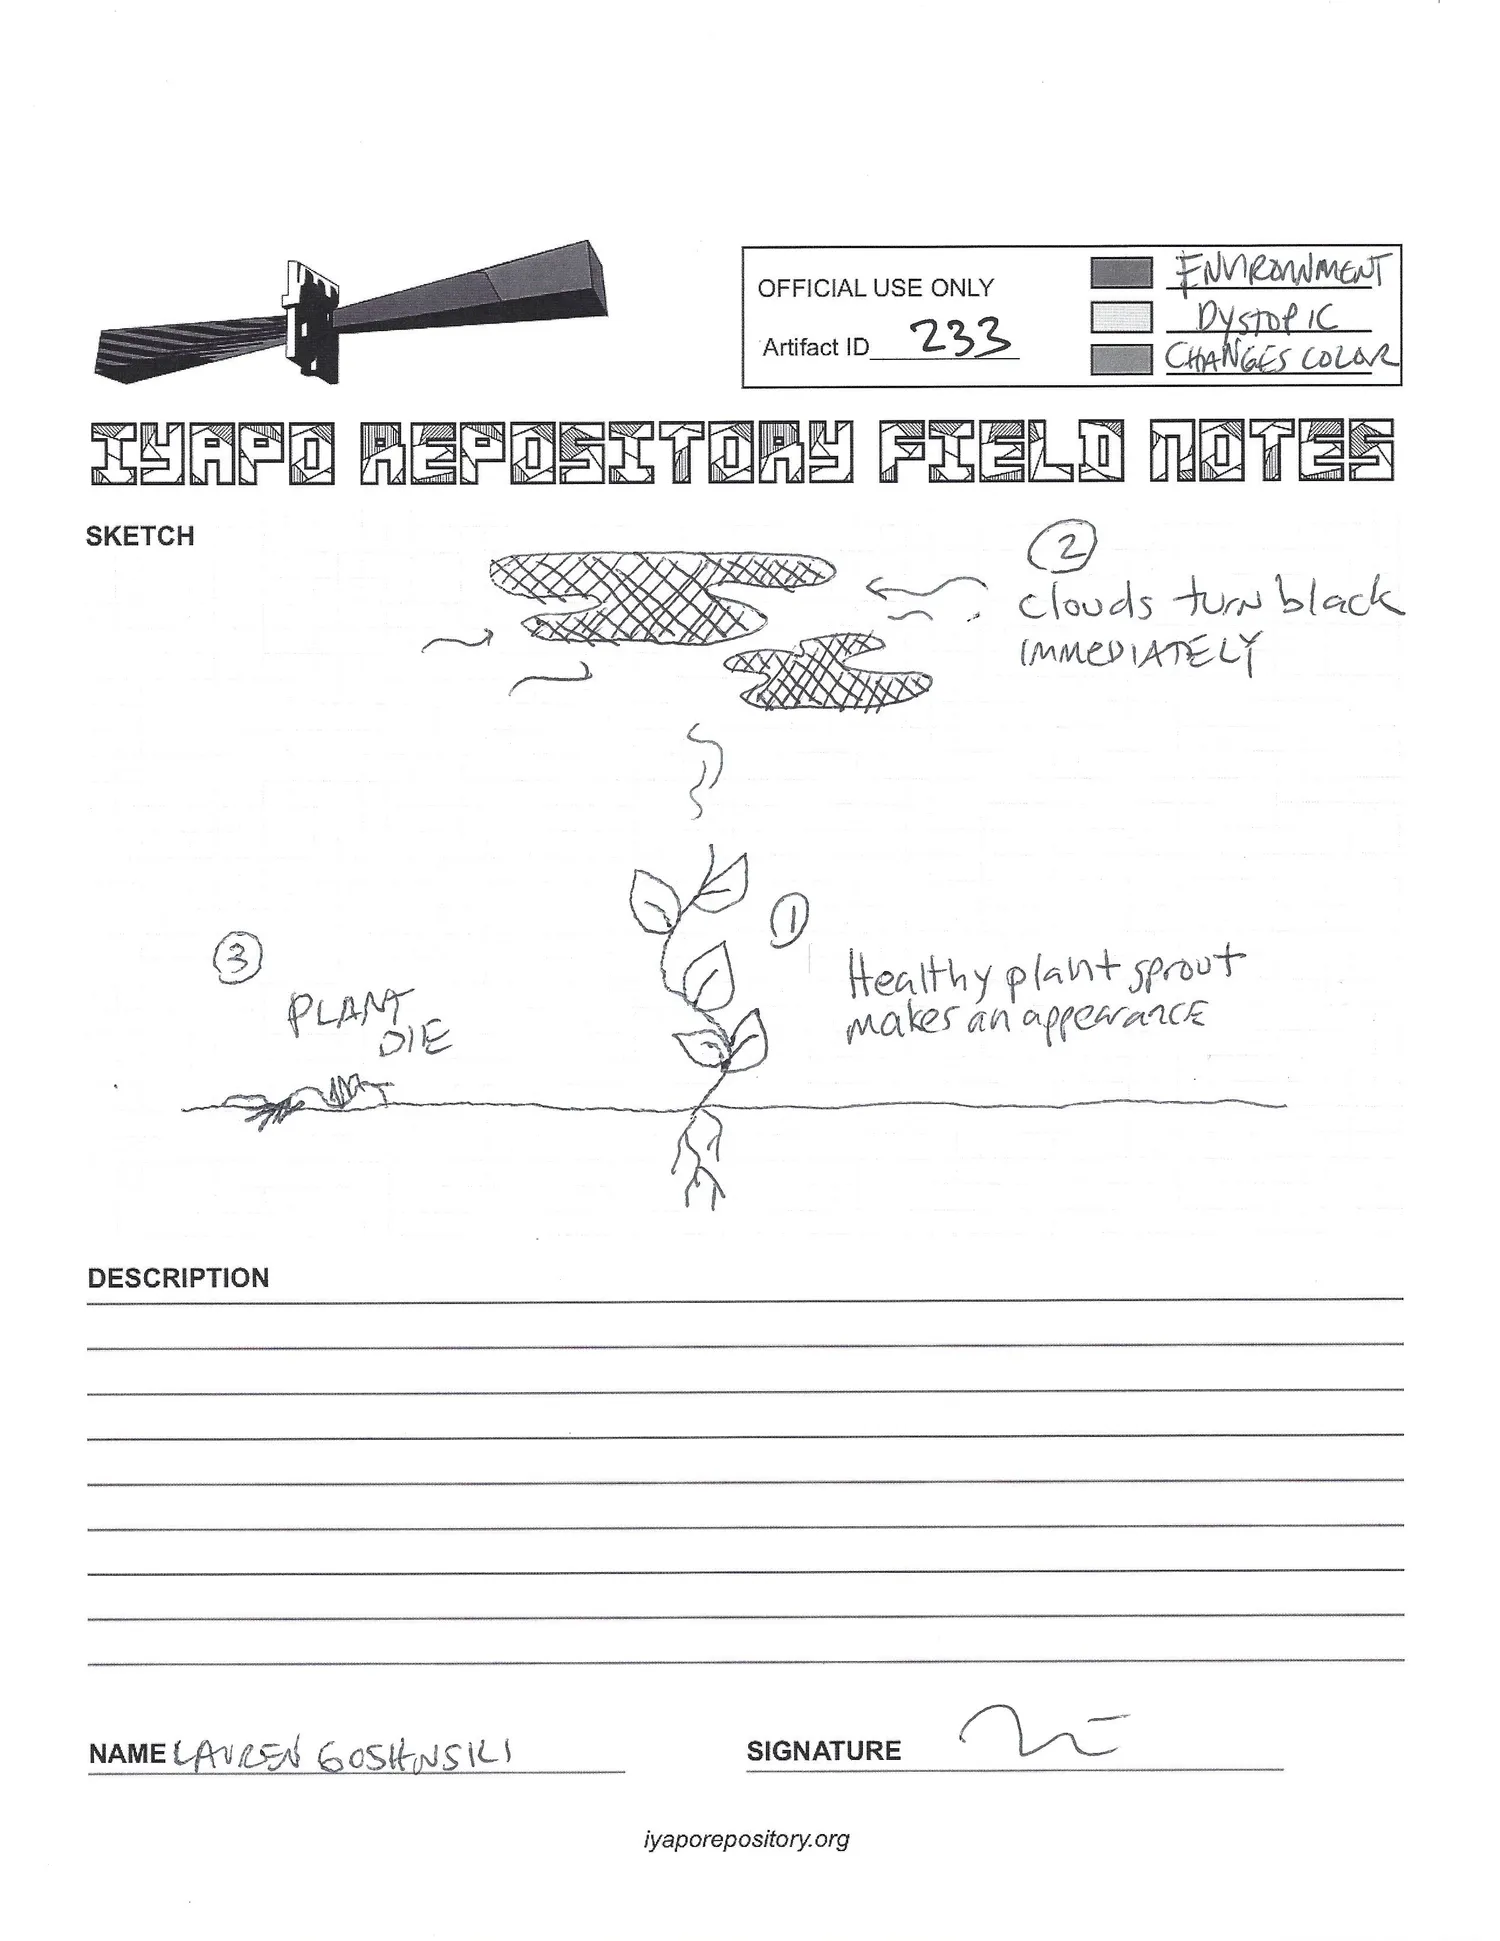 OFFICIAL USE ONLY
Artifact ID 233
ENVIRONMENT
DYSTOPIC
CHANGES COLOR
IYAPO REPOSITORY FIELD NOTES
SKETCH
2
clouds turn black
IMMEDIATELY
1
Healthy plant sprout
makes an appearance
3
PLANT
DIE
DESCRIPTION
NAME LAUREN
SIGNATURE
iyaporepository.org